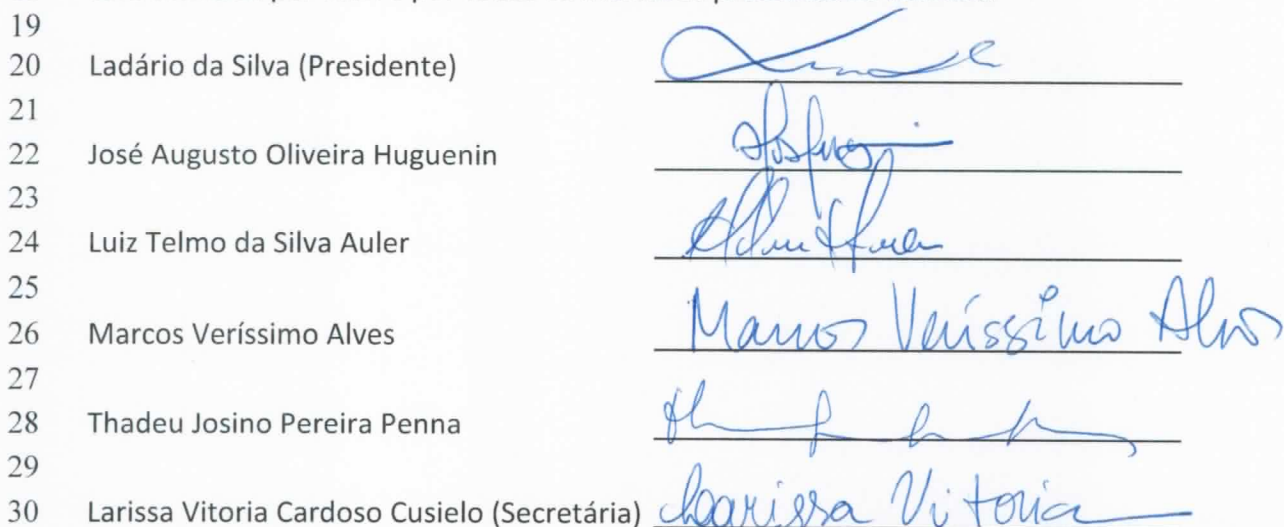 19
20 Ladário da Silva (Presidente)
21
22 José Augusto Oliveira Huguenin
23
24 Luiz Telmo da Silva Auler
25
26 Marcos Veríssimo Alves Marcos Veríssimo Alves
27
28 Thadeu Josino Pereira Penna
29
30 Larissa Vitoria Cardoso Cusielo (Secretária) Larissa Vitoria